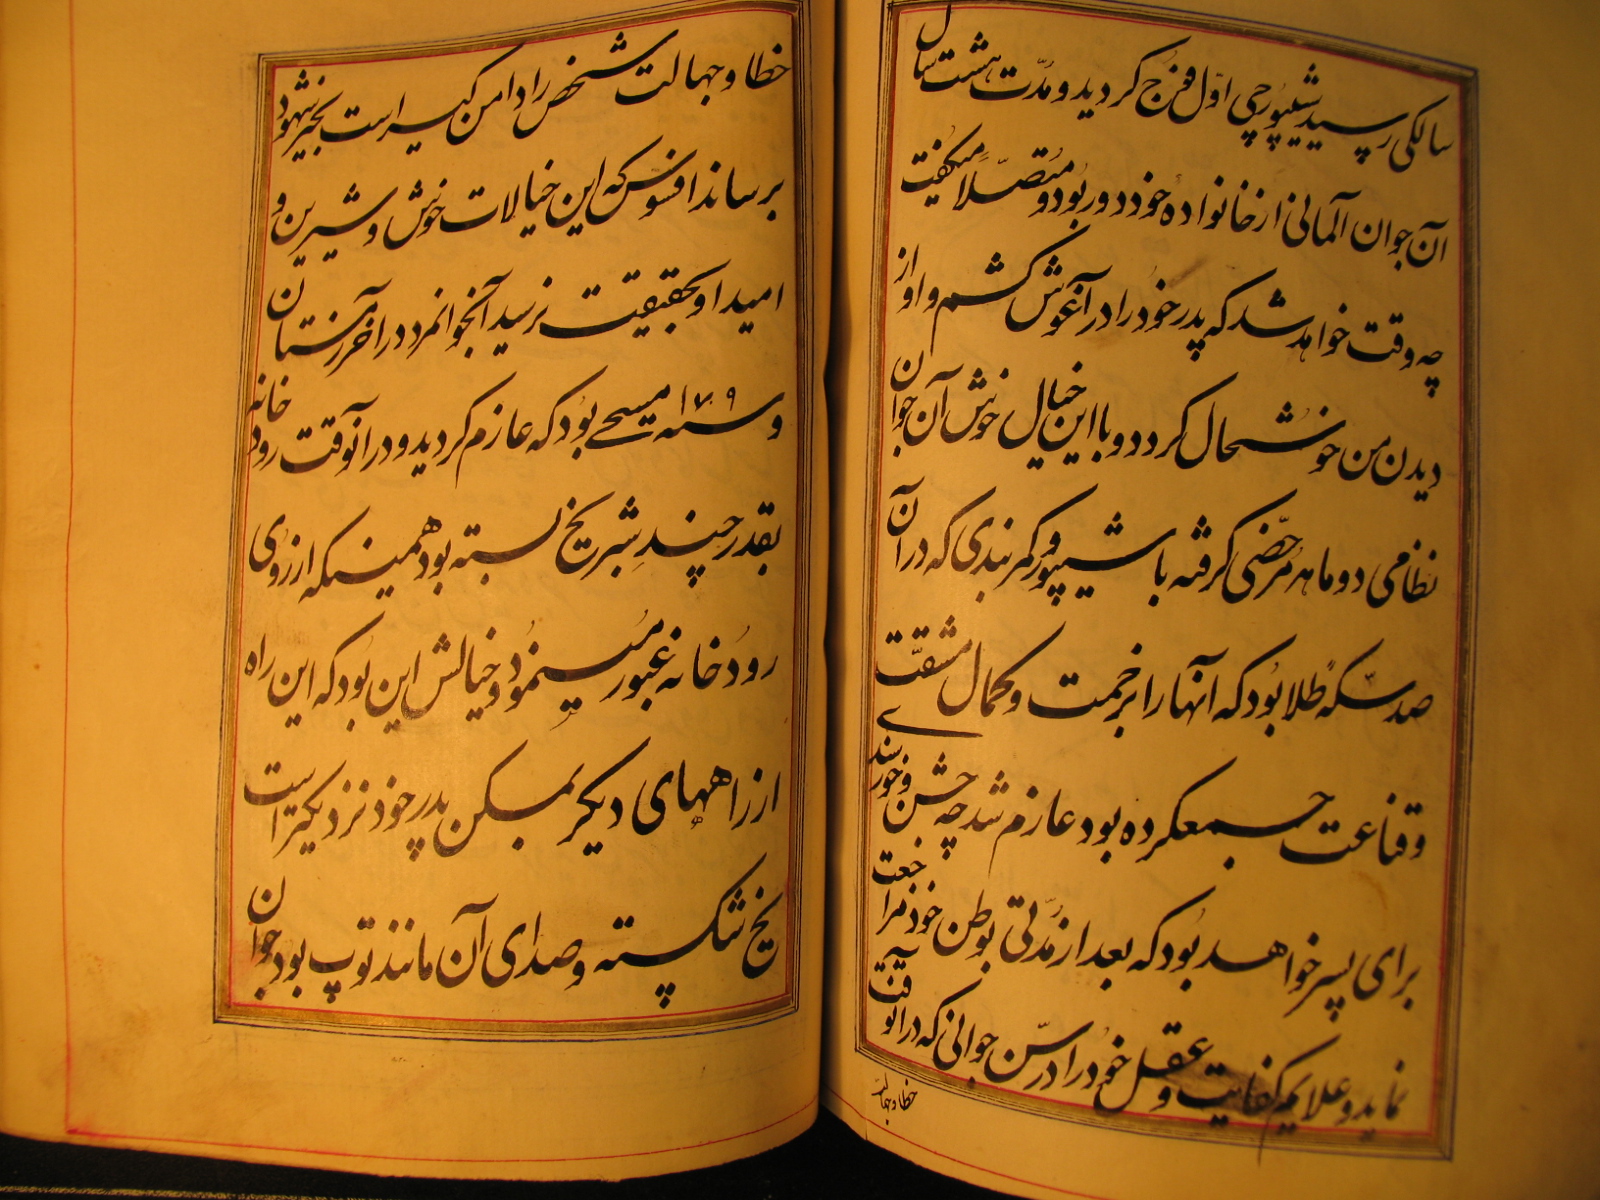 سالکی رسید شیپورچی اول فوج کردید و مدت هشت سال
آن جوان آلمانی از خانواده خود دور بود و متصلاً میکفت
چه وقت خواهد شد که پدر خود را در آغوش کشم و او از
دیدن من خوشحال کردد و با این خیال خوش آن جوان
نظامی دو ماهه مرخصی کرفته با شیپور و کمربندی که در آن
صد سکه طلا بود که آنها را بزحمت و کمال مشقت
و قناعت جمع کرده بود عازم شد چه جشن و خورسندی
برای پسر خواهد بود که بعد از مدتی بوطن خود مراجعت
نماید و علایم کفایت و عقل خود را در سن جوانی که در آنوقت
خطا و جهالت
خطا و جهالت شخص را دامن کیر است بحیز شهود
برساند افسوس که این خیالات خوش و شیرین و
امید او بحقیقت نرسید آنجوانمرد در آخر زمستان
و سنه ۱۷۰۹ مسیحی بود که عازم کردید و در آنوقت رودخانه
بقدر چند شبر یخ بسته بود همینکه از روی
رودخانه عبور مینمود و خیالش این بود که این راه
از راههای دیکر بمسکن پدر خود نزدیکتر است
یخ شکسته و صدای آن مانند توپ بود جوان